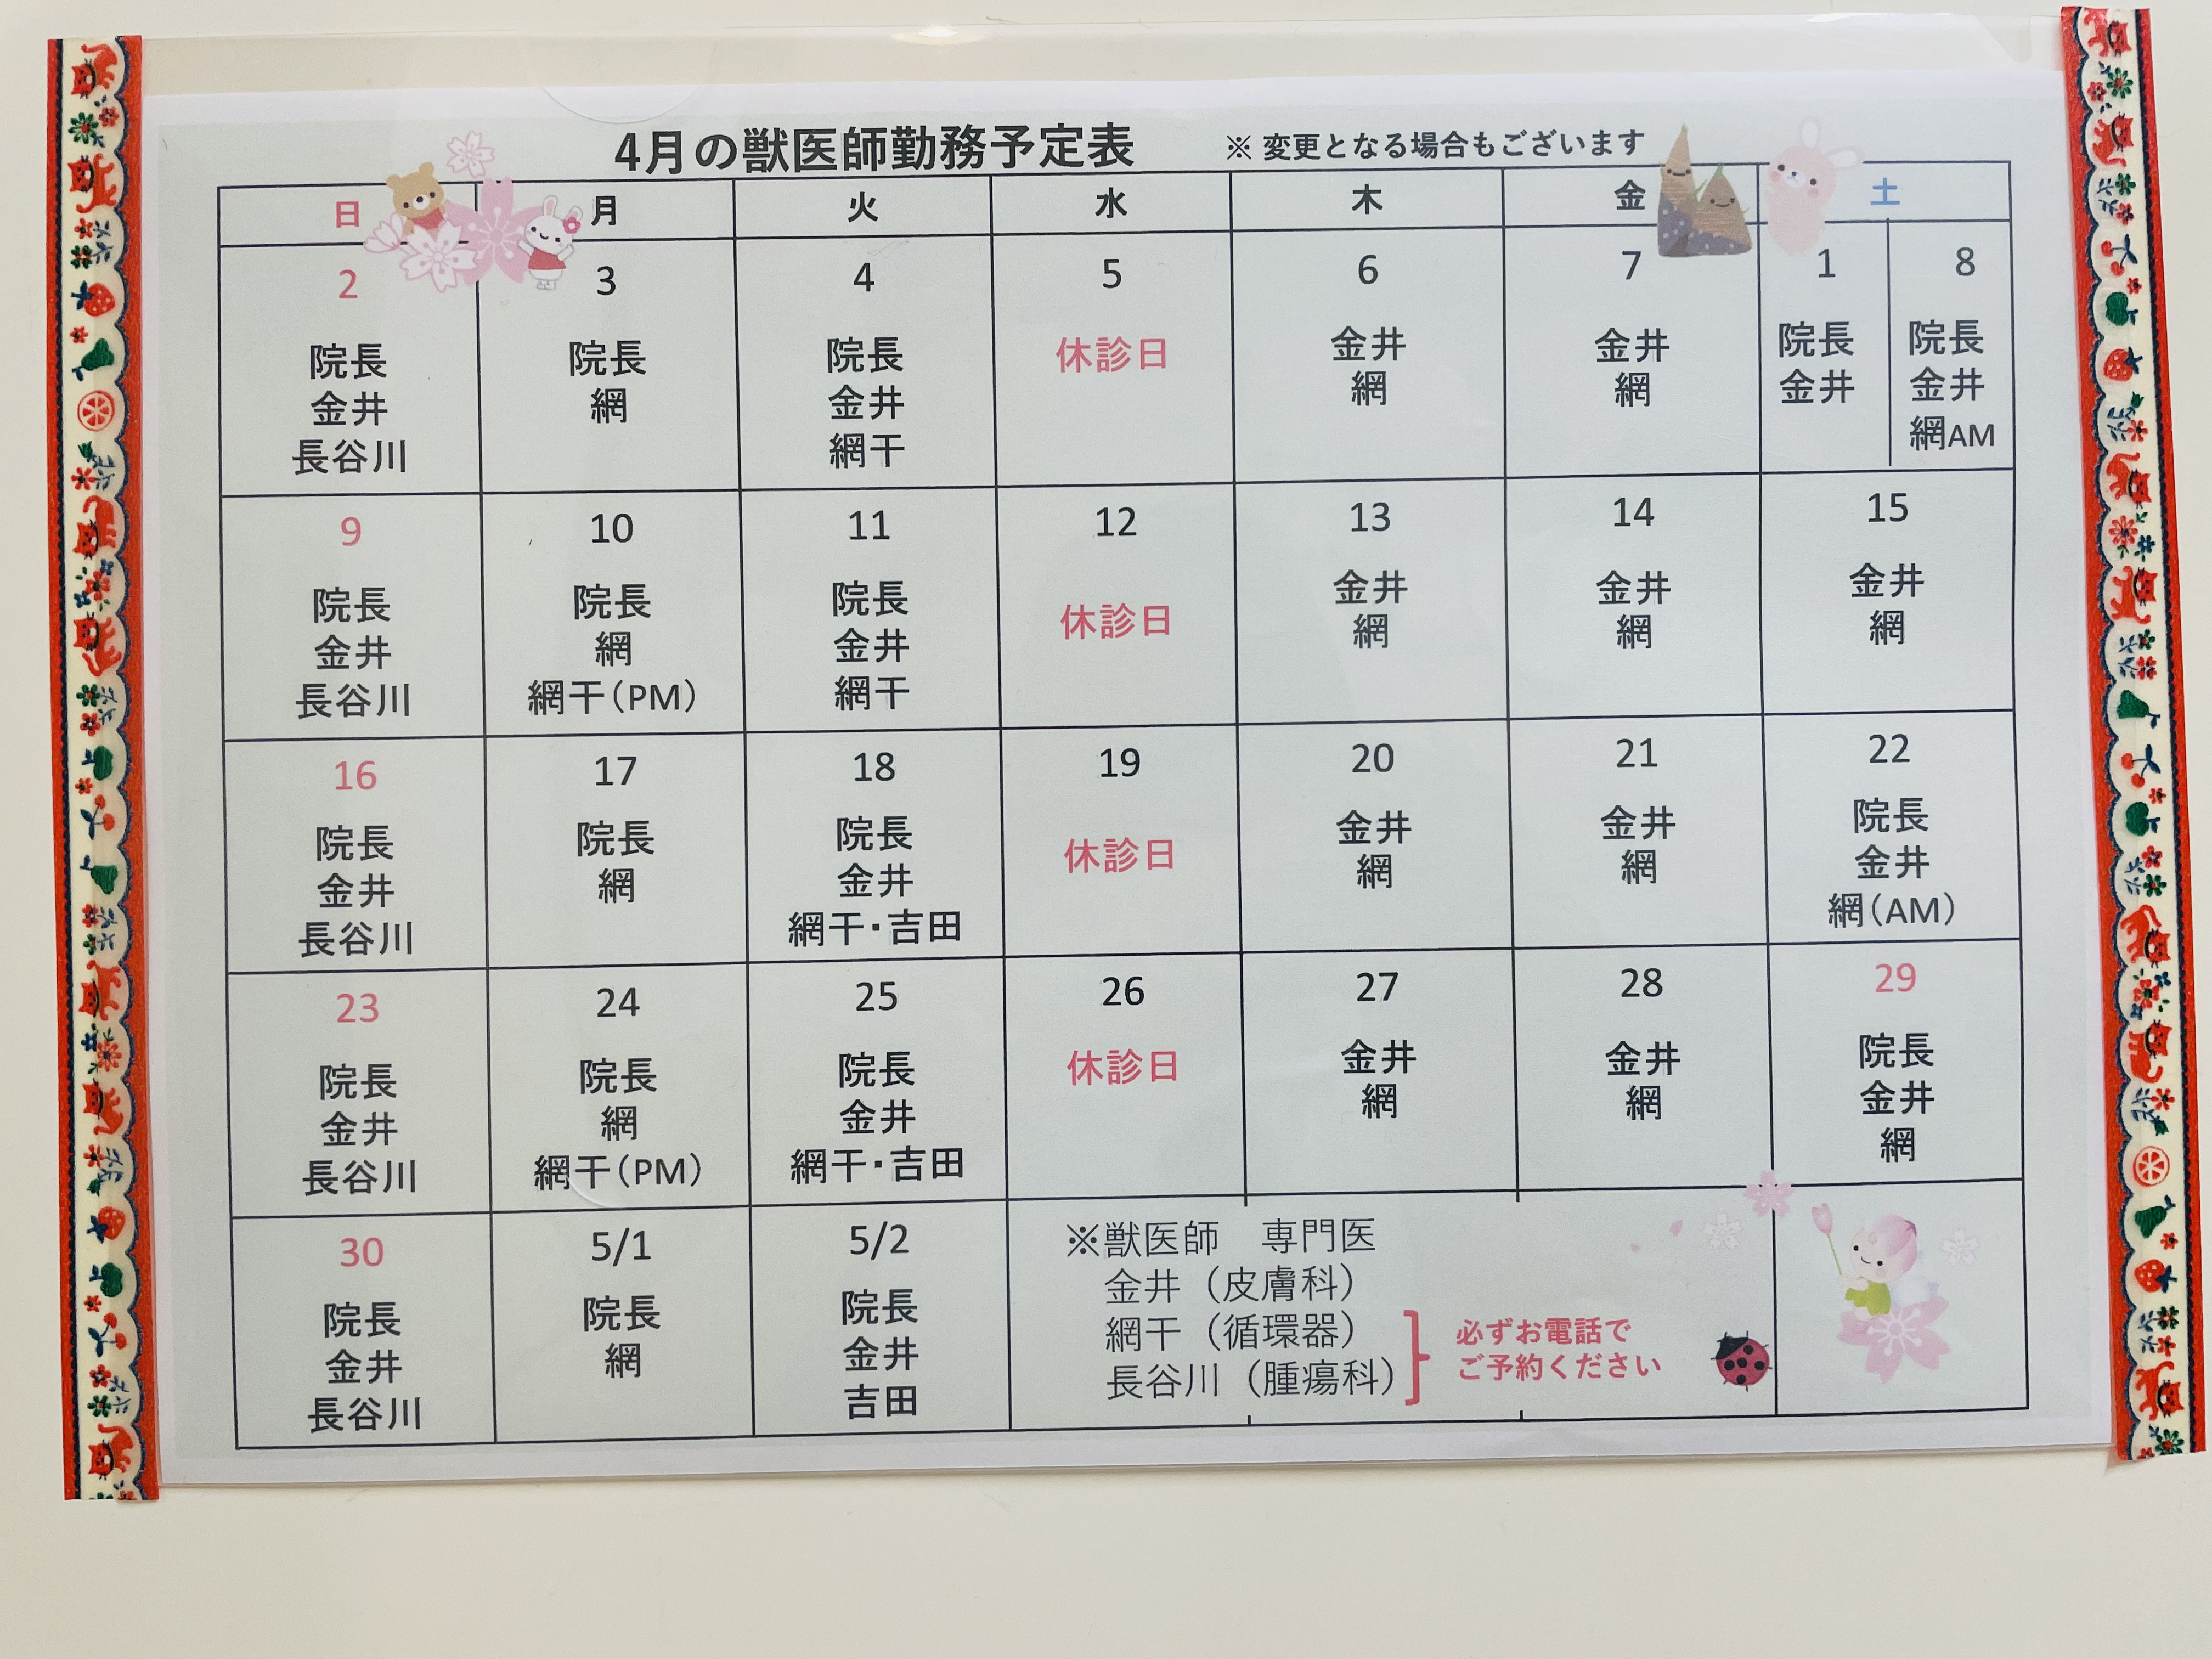 4月の獣医師勤務予定表　※ 変更となる場合もございます
日 月 火 水 木 金 土
2 3 4 5 6 7 1 8
院長 院長 院長 休診日 金井 金井 院長 院長
金井 網 金井 網 網 金井 金井
長谷川 網干 網AM
9 10 11 12 13 14 15
院長 院長 院長 休診日 金井 金井 金井
金井 網 金井 網 網 網
長谷川 網干(PM) 網干
16 17 18 19 20 21 22
院長 院長 院長 休診日 金井 金井 院長
金井 網 金井 網 網 金井
長谷川 網干・吉田 網(AM)
23 24 25 26 27 28 29
院長 院長 院長 休診日 金井 金井 院長
金井 網 金井 網 網 金井
長谷川 網干(PM) 網干・吉田 網
30 5/1 5/2
院長 院長 院長
金井 網 金井
長谷川 吉田
※獣医師　専門医
金井（皮膚科）
網干（循環器）
長谷川（腫瘍科）
必ずお電話で
ご予約ください